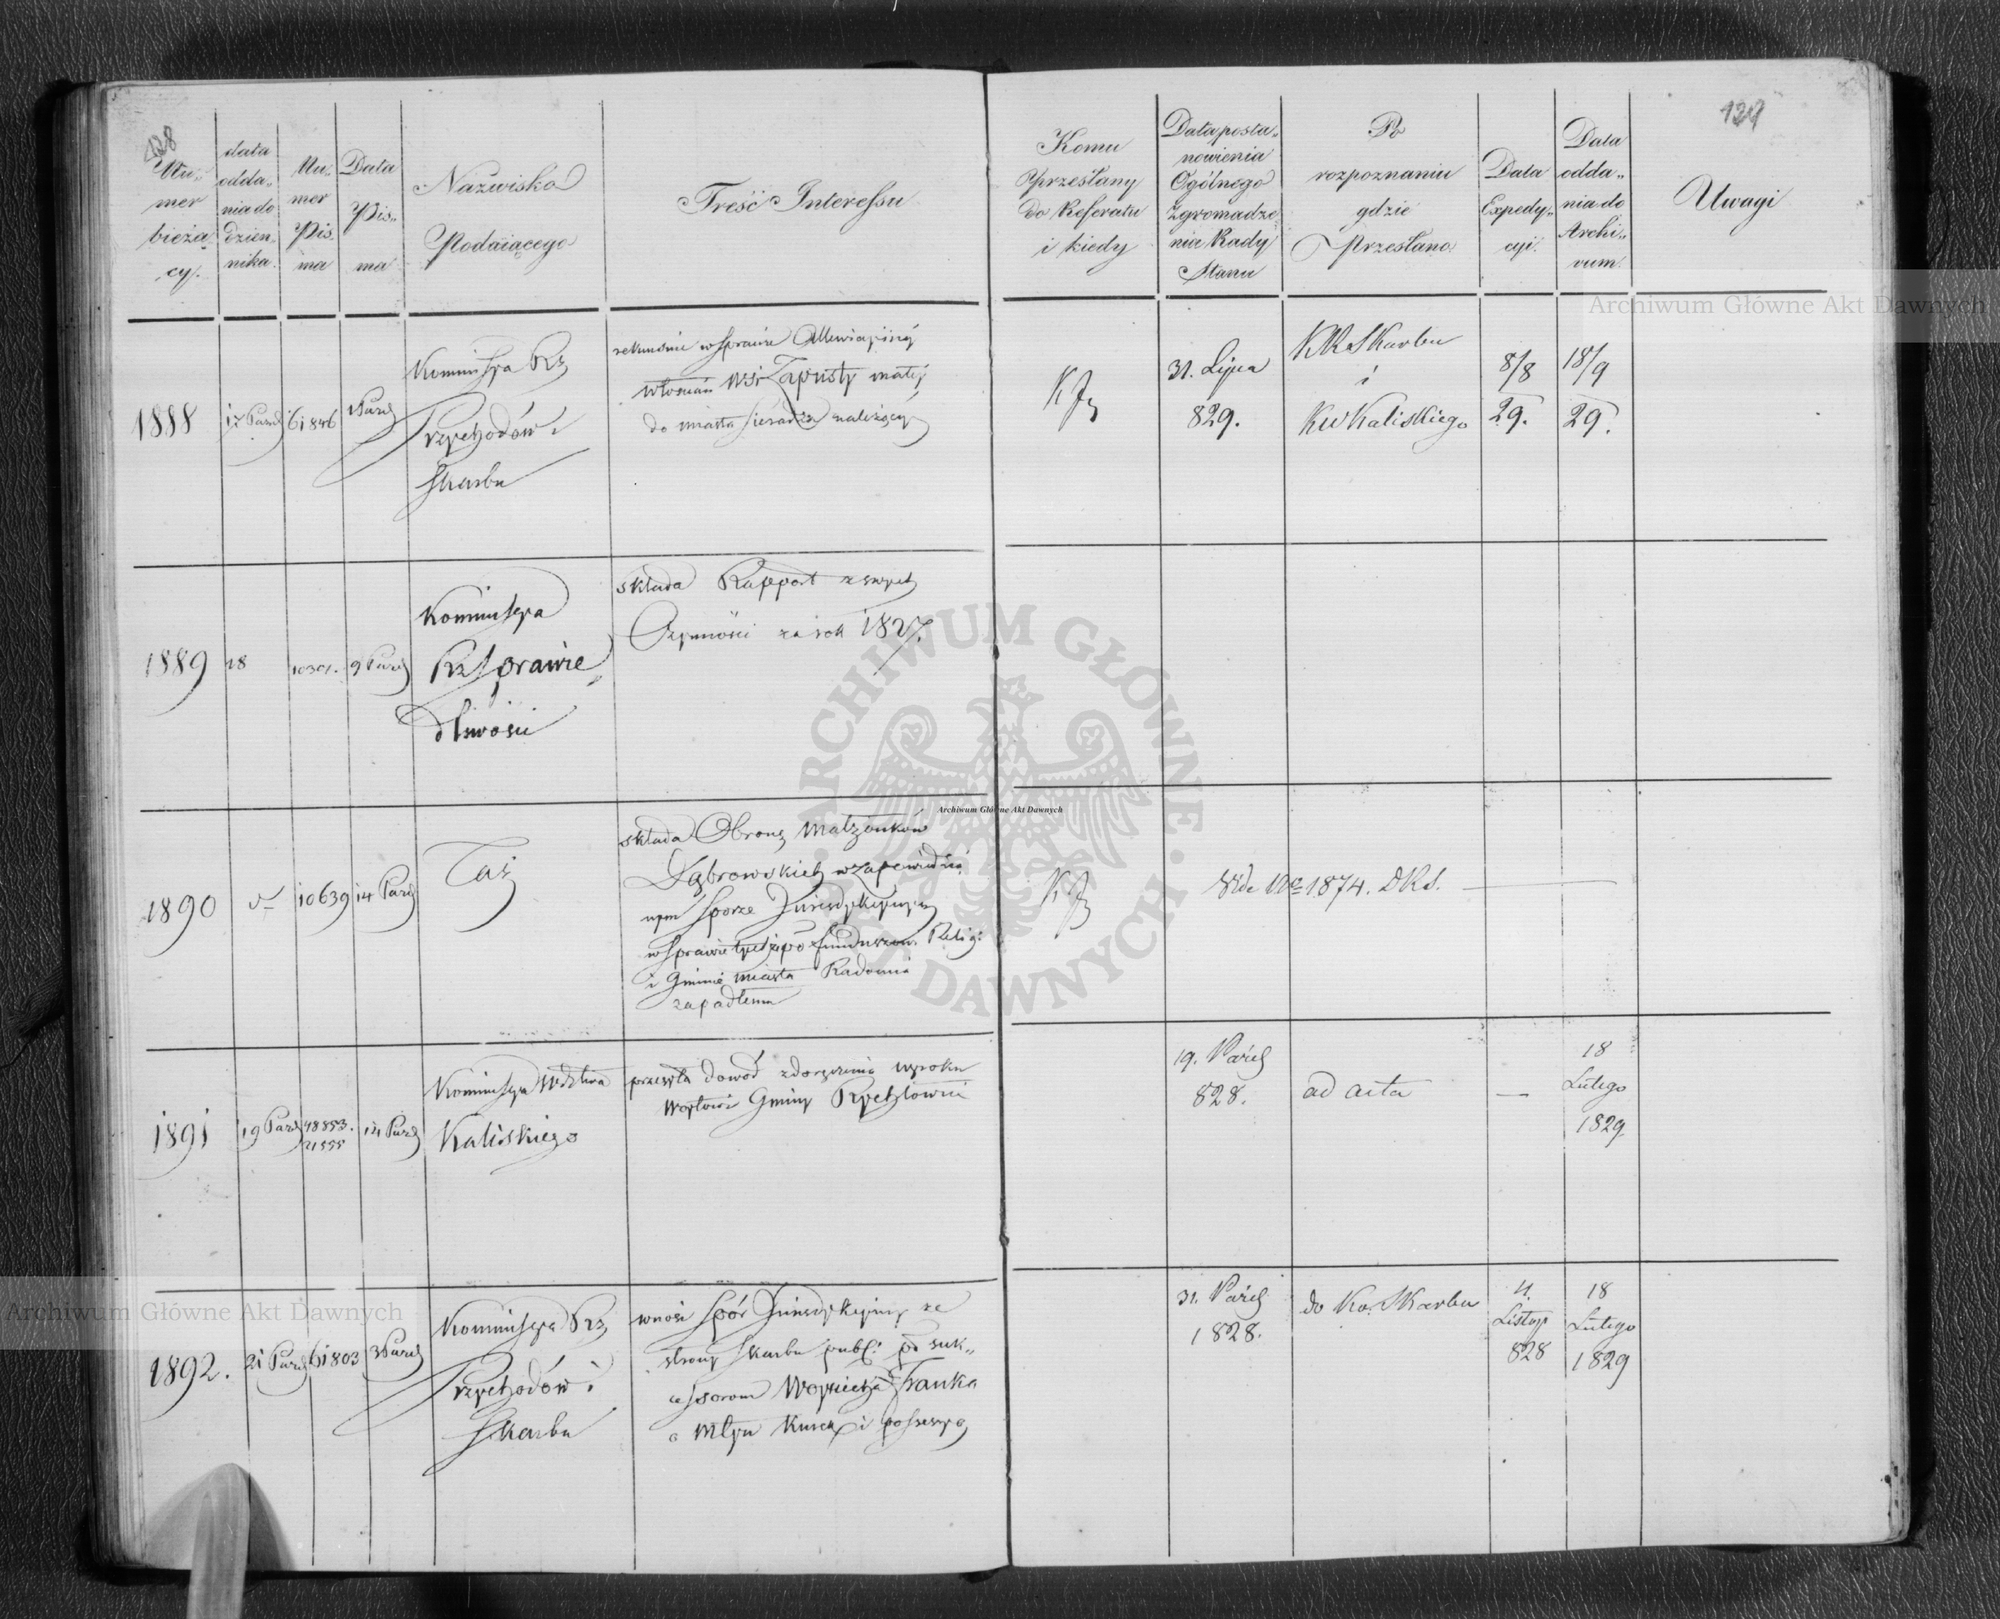 128
Nu-
mer
bieżą
cy.
data
odda-
nia do
dzien-
nika.
Nu-
mer
Pis-
ma
Data
Pis-
ma
Nazwisko
Podaiącego
Treść Interessu
1888
17 Paźd
61846
Paźd
Kommissya Rz
Przychodów i
Skarbu
w sprawie
włościan wsi Zapusty małéj
do miasta Sieradza należącéj
1889
18
10301.
9 Paźd
Kommissya
Rz Sprawie
dliwości
składa Rapport z swych
Czynności za rok 1827.
1890
10639
14 Paźd
Taż
składa Obronę Małżonków
Dąbrowskich w zapowiedzia
nym sporze Jurisdykcyinym
w sprawie tychże po funduszow. Relig:
i Gminie miasta Radomia
zapadłem
1891
19 Paźd
48853.
21555
14 Paźd
Kommissya Wdztwa
Kaliskiego
przesyła dowód doręczenia wyroku
Woytowi Gminy Rychłowice
1892.
21 Paźd
61803
3 Paźd
Kommissya Rz
Przychodów i
Skarbu
wnosi spór Jurisdykcyiny ze
strony Skarbu publ: po suk-
cessorom Woyciecha Franka
o Młyn i possessyą
129
Komu
przesłany
do Referatu
i kiedy
Data posta-
nowienia
Ogólnego
Zgromadze
nia Rady
Stanu
Po
rozpoznaniu
gdzie
Przesłano
Data
Expedy-
cyi.
Data
odda-
nia do
Archi-
vum.
Uwagi
31. Lipca
829.
KRSkarbu
i
KWKaliskiego
8/8
29.
18/9
29.
Vide No 1874. DKS.
19. Paźd
828.
ad acta
—
18
Lutego
1829
31. Paźd
1828.
do Ko. Skarbu
4.
Listop
828
18
Lutego
1829
Archiwum Główne Akt Dawnych
Archiwum Główne Akt Dawnych
Archiwum Główne Akt Dawnych
ARCHIWUM GŁÓWNE AKT DAWNYCH